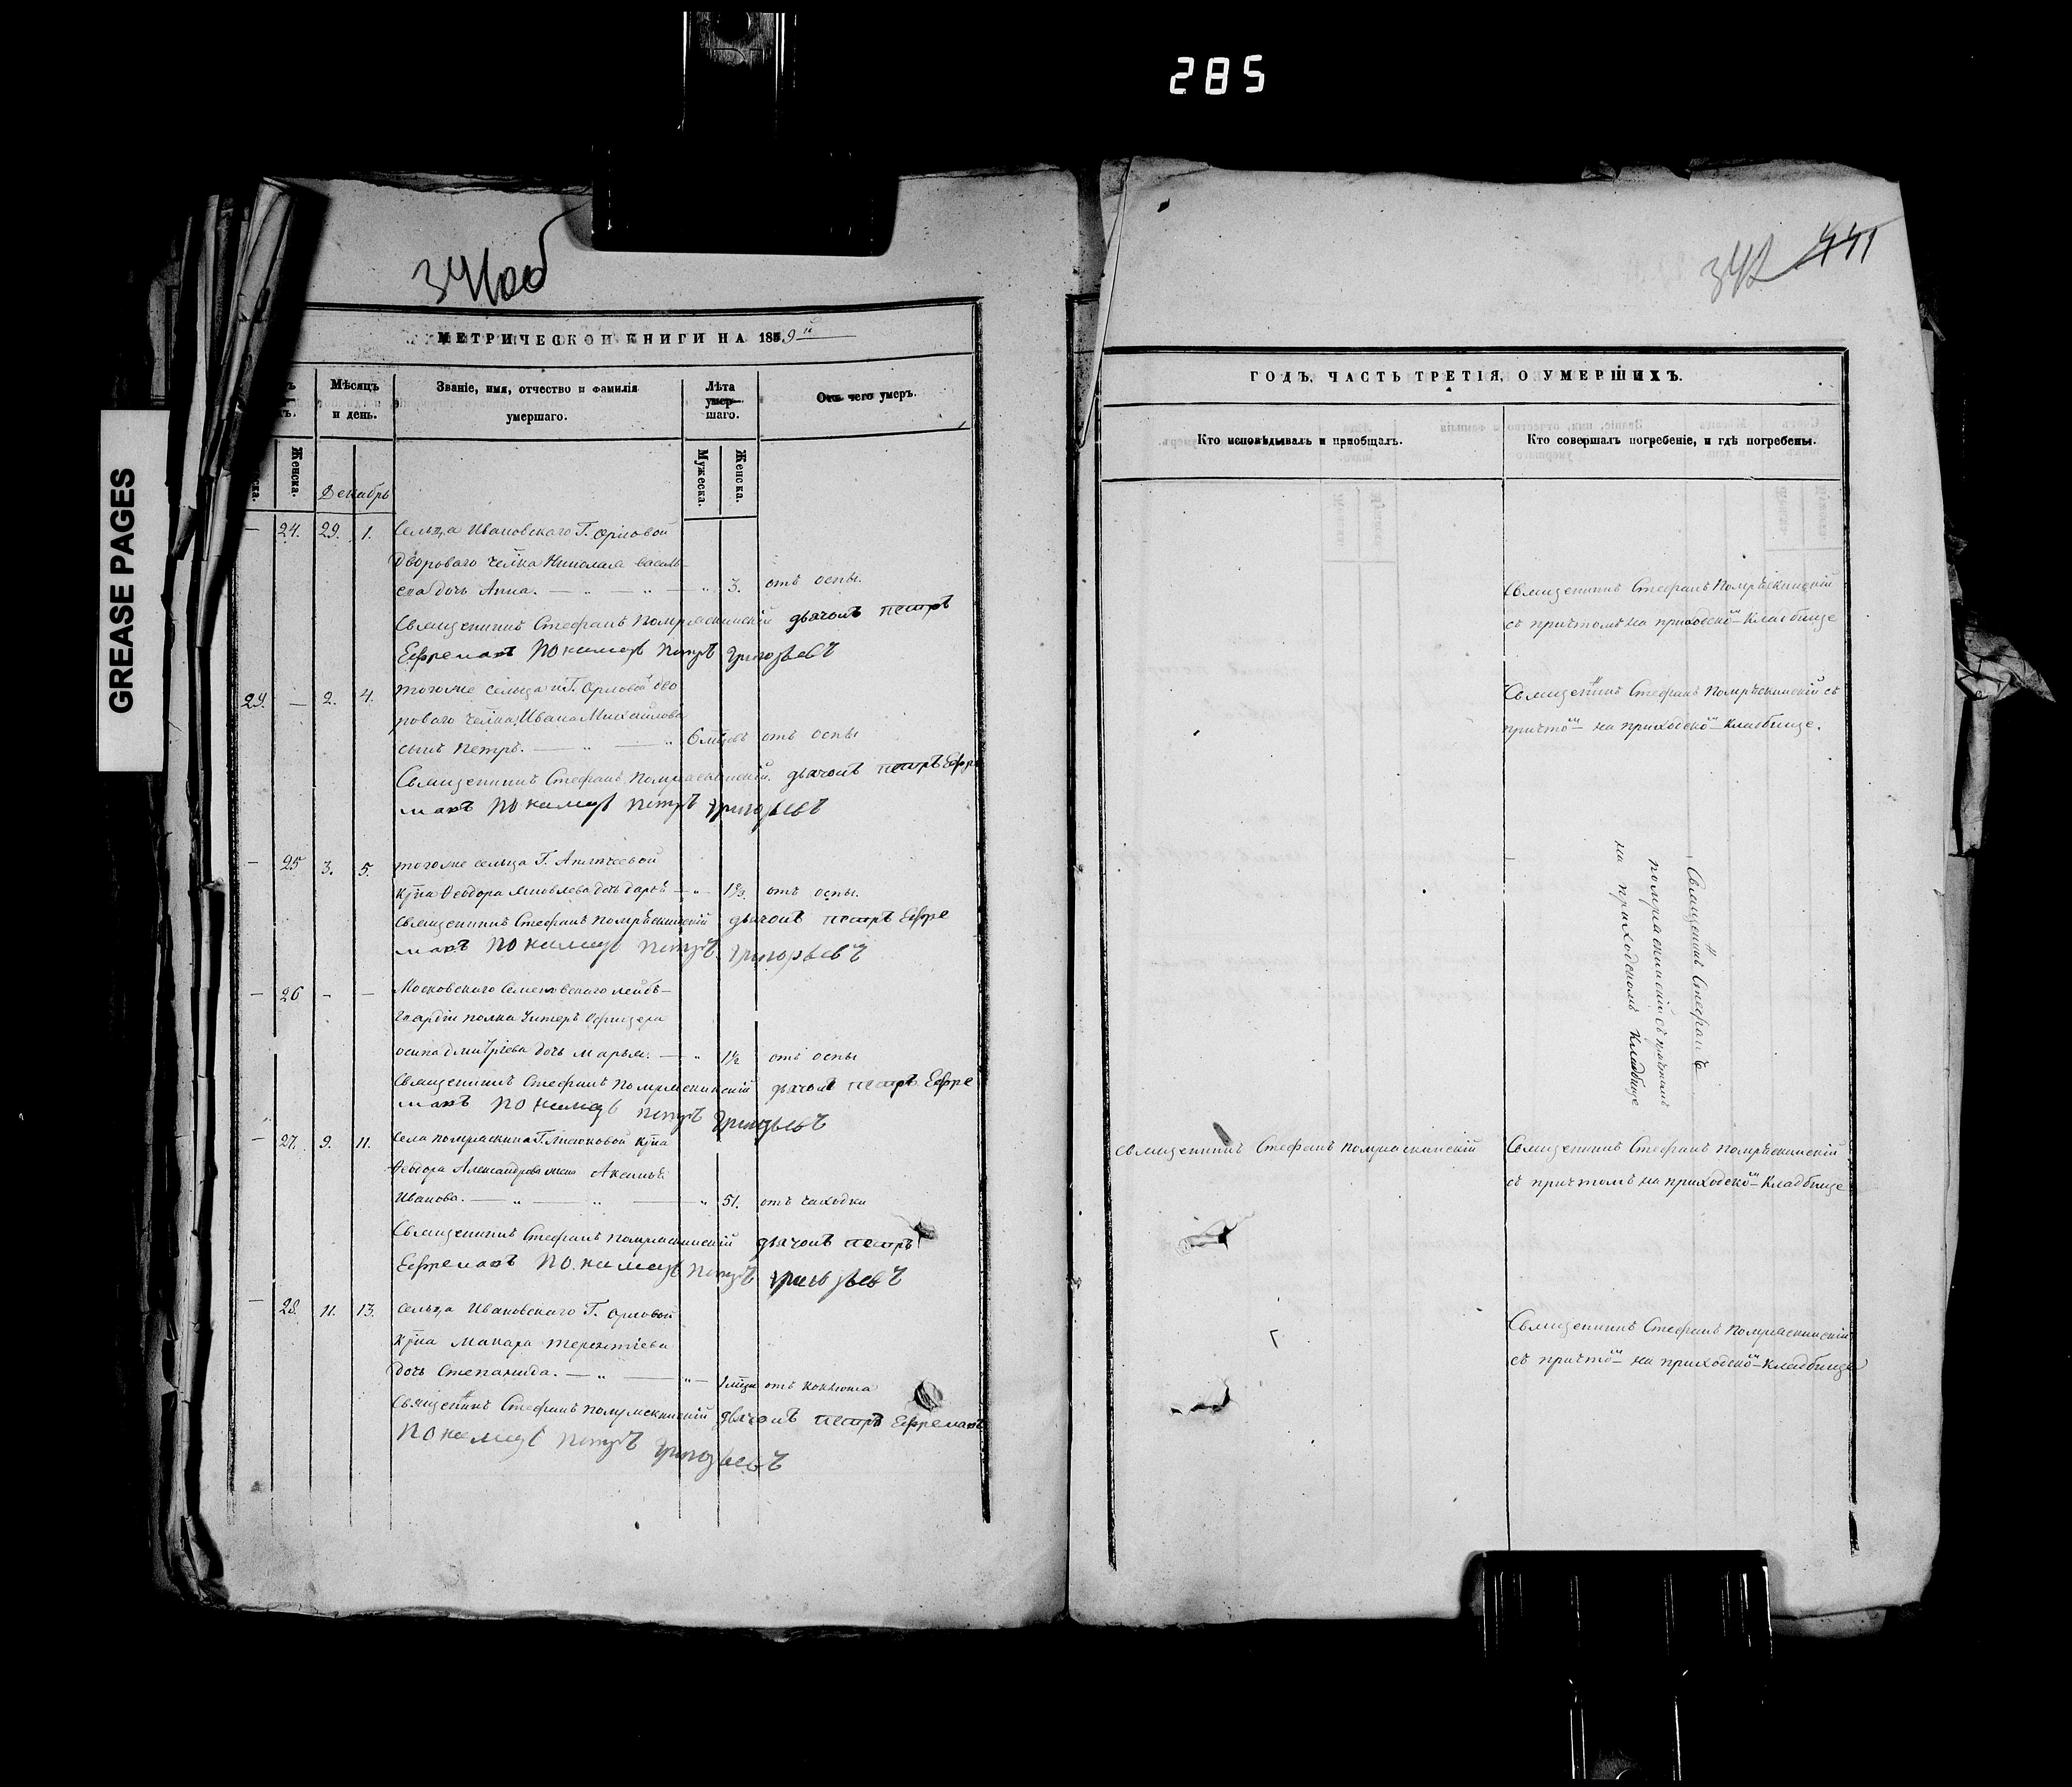 285
GREASE PAGES
341об
МЕТРИЧЕСКОЙ КНИГИ НА 1859й
Мѣсяцъ и день.
Званіе, имя, отчество и фамилія умершаго.
Лѣта умершаго.
Отъ чего умеръ.
Женска.
Мужеска.
Женска.
Декабрь
— 24. 29. 1. Сельца Ивановскаго Г. Орловой
двороваго челка Николая Василь-
ева дочь Анна. — „ — „ — „ 3. отъ оспы.
Священникъ Стефанъ Помряскинскій дьячокъ Петръ
Ефремовъ Пономарь Петръ Григорьевъ
29. — 2. 4. Тогоже сельца и Г. Орловой дво
роваго челка Ивана Михайлова
сынъ Петръ. — „ — „ 6 мцевъ отъ оспы
Священникъ Стефанъ Помряскинскій. дьячокъ Петръ Ефре
мовъ Пономарь Петръ Григорьевъ
— 25 3. 5. Тогоже сельца Г.
кр̃на Ѳеодора Яковлева дочь Дарья — „ — отъ оспы.
Священникъ Стефанъ Помряскинскій дьячокъ Петръ Ефре
мовъ Пономарь Петръ Григорьевъ
— 26 - — Московскаго Семеновскаго лейбъ-
гвардіи полка Унтеръ Офицера
Осипа Дмитріева дочь Марья. — „ 1½ отъ оспы
Священникъ Стефанъ Помряскинскій дьячокъ Петръ Ефре
мовъ Пономарь Петръ Григорьевъ
— 27. 9. 11. Села Помряскина Г. кр̃на
Ѳеодора Александрова жена Аксинья
Иванова. — „ — „ — „ 51. отъ чахотки
Священникъ Стефанъ Помряскинскій дьячокъ Петръ
Ефремовъ Пономарь Петръ Григорьевъ
— 28. 11. 13. Сельца Ивановскаго Г. Орловой
кр̃на Макара Терентіева
дочь Степанида. — „ — „ — отъ коклюша
Священникъ Стефанъ Помряскинскій дьячокъ Петръ Ефремовъ
Пономарь Петръ Григорьевъ
342 441
ГОДЪ, ЧАСТЬ ТРЕТІЯ, О УМЕРШИХЪ.
Кто исповѣдывалъ и пріобщалъ.
Кто совершалъ погребеніе, и гдѣ погребены.
Священникъ Стефанъ Помряскинскій
съ причтомъ на приходском кладбище
Священникъ Стефанъ Помряскинскій съ
причтом на приходском кладбище.
Священникъ Стефанъ
Помряскинскій съ причтомъ
на приходскомъ кладбище
Священникъ Стефанъ Помряскинскій
Священникъ Стефанъ Помряскинскій
съ причтомъ на приходском кладбище
Священникъ Стефанъ Помряскинскій
съ причтом на приходском кладбище